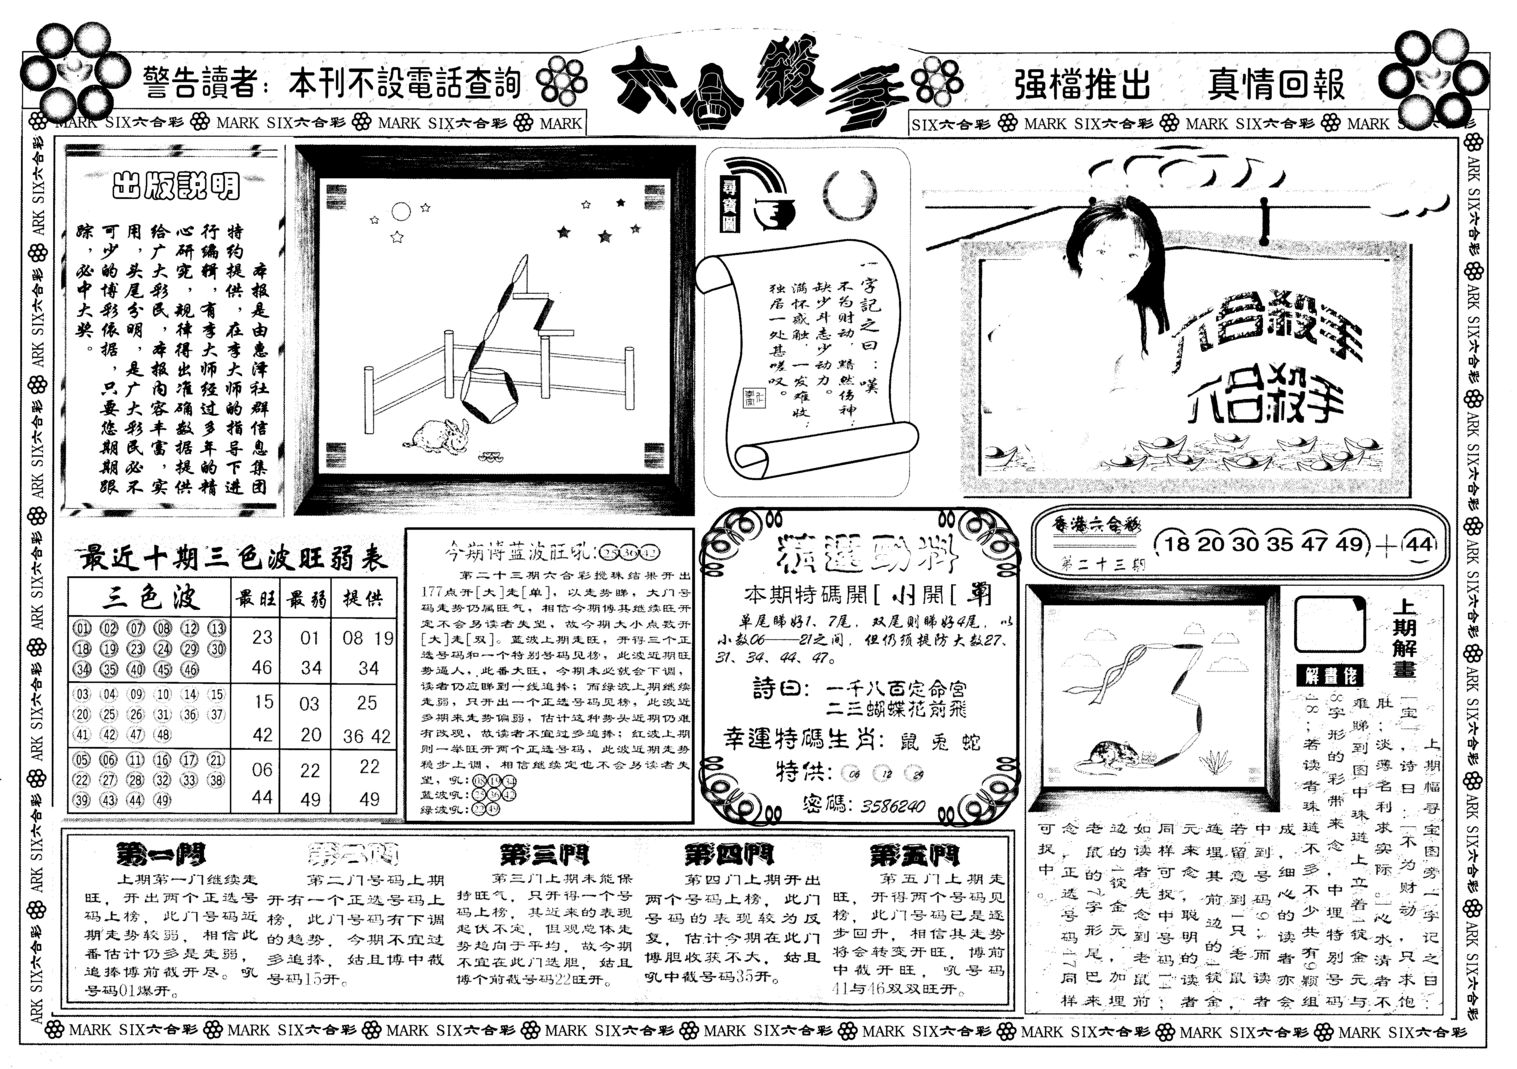 警告讀者：本刊不設電話查詢
六合殺手
强檔推出 真情回報
MARK SIX六合彩 MARK SIX六合彩 MARK SIX六合彩 MARK
SIX六合彩 MARK SIX六合彩 MARK SIX六合彩 MARK
出版説明
本报是由惠泽社群信息集团
特约提供，在李大师的指导下进
行编辑，有李大师经过多年的精
心研究，规律得出准确数据提供
给广大彩民，本报内容丰富，实
用，头尾分明，是广大彩民必不
可少的博彩依据，只要您期期跟
踪，必中大奖。
尋寶圖
一字記之曰：嘆
不为财动，黯然伤神；
缺少斗志少动力。
满怀感触，一发难收；
独居一处甚嗟叹。
六合殺手
六合殺手
香港六合彩
第二十三期
18 20 30 35 47 49 + 44
最近十期三色波旺弱表
三色波 最旺 最弱 提供
01 02 07 08 12 13
18 19 23 24 29 30
34 35 40 45 46
23 01 08 19
46 34 34
03 04 09 10 14 15
20 25 26 31 36 37
41 42 47 48
15 03 25
42 20 36 42
05 06 11 16 17 21
22 27 28 32 33 38
39 43 44 49
06 22 22
44 49 49
今期博蓝波旺吼：25 36 42
第二十三期六合彩搅珠结果开出
177点开[大]走[单]，以走势睇，大门号
码走势仍属旺气，相信今期博其继续旺开
定不会另读者失望，故今期大小点数开
[大]走[双]。蓝波上期走旺，开得三个正
选号码和一个特别号码见榜，此波近期旺
势逼人，此番大旺，今期未必就会下调，
读者仍应睇到一线追捧；而绿波上期继续
走弱，只开出一个正选号码见榜，此波近
多期来走势偏弱，估计这种势头近期仍难
有改观，故读者不宜过多追捧；红波上期
则一举旺开两个正选号码，此波近期走势
稳步上调，相信继续定也不会另读者失
望，吼：08 19 34
蓝波吼：25 36 42
绿波吼：22 49
精選勁料
本期特碼開[小]開[單]
單尾睇好1、7尾，双尾则睇好4尾，以
小数06——21之间，但仍须提防大数27、
31、34、44、47。
詩曰：一千八百定命宫
二三蝴蝶花前飛
幸運特碼生肖：鼠 兎 蛇
特供：06 12 29
密碼：3586240
上期解畫
解畫佬
上期幅寻宝图旁一字记之曰
「宝」，诗曰：「不为财动，只求饱
肚；淡薄名利求实际。」心水清者不
难睇到图中珠链上立着1锭金元与
8字形的彩带来念，中埋特别号码
48；若读者珠琏不多不少共有9颗组
成，细心的读者亦会
中到号码9；而读者
若留意到一只老鼠，
连埋其前边的1锭金
元来念，聪明的读者
同样可捉中号码1；
如读者先念到老鼠前
边的1锭金元，加埋
老鼠的7字形尾巴来
念，正选号码17同样
可捉中。
第一門
上期第一门继续走
旺，开出两个正选号
码上榜，此门号码近
期走势较弱，相信此
番估计仍多是走弱，
追捧博前截开尽。吼
号码01爆开。
第二門
第二门号码上期
开有一个正选号码上
榜，此门号码有下调
的趋势，今期不宜过
多追捧，姑且博中截
号码15开。
第三門
第三门上期未能保
持旺气，只开得一个号
码上榜，其近来的表现
起伏不定，但观总体走
势趋向于平均，故今期
不宜在此门选胆，姑且
博个前截号码22旺开。
第四門
第四门上期开出
两个号码上榜，此门
号码的表现较为反
复，估计今期在此门
博胆收获不大，姑且
吼中截号码35开。
第五門
第五门上期走
旺，开得两个号码见
榜，此门号码已是逐
步回升，相信其走势
将会转变开旺，博前
中截开旺，吼号码
41与46双双旺开。
MARK SIX六合彩 MARK SIX六合彩 MARK SIX六合彩 MARK SIX六合彩 MARK SIX六合彩 MARK SIX六合彩 MARK SIX六合彩 MARK SIX六合彩 MARK SIX六合彩